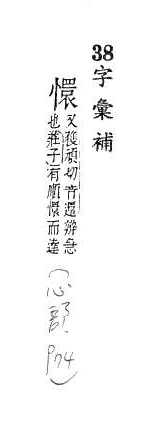 38字彙補
懁
又獲頑切音還辨急
也莊子有順懁而達
(心部
P74)